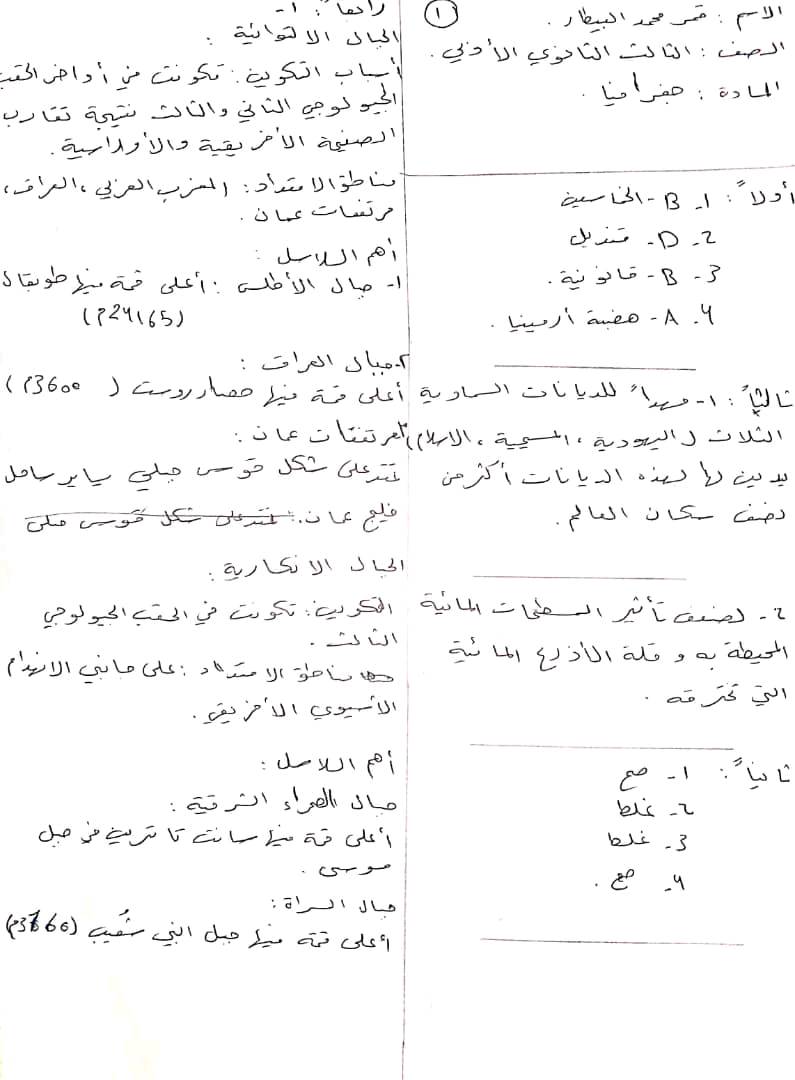 الاسم : قمر محمد البيطار .
الصف : الثالث الثانوي الأدبي .
المادة : جغرافيا .
①
أولاً : 1- B - الخاسية
2- D - قنديل
3- B - قانونية .
4- A - هضبة أرمينيا .
ثالثاً : 1- مهداً للديانات السماوية
الثلاث ( اليهودية ، المسيحية ، الاسلام )
يدين لهذه الديانات أكثر من
نصف سكان العالم .
2- لضعف تأثير المسطحات المائية
المحيطة به و قلة الأذرع المائية
التي تخترقه .
ثانياً : 1- صح
2- غلط
3- غلط
4- صح .
رابعاً : 1-
الجبال الالتوائية :
أسباب التكوين : تكونت في أواخر الحقب
الجيولوجي الثاني والثالث نتيجة تقارب
الصفيحة الأفريقية والأوراسية .
مناطق الامتداد : المغرب العربي ، العراق ،
مرتفعات عمان .
أهم السلاسل :
1- جبال الأطلس : أعلى قمة فيها طوبقال
(4165م)
2- جبال العراق :
أعلى قمة فيها حصاروست ( 3600م )
3- مرتفعات عمان :
تمتد على شكل قوس جبلي يساير ساحل
خليج عمان .
الجبال الانكسارية :
التكوين : تكونت في الحقب الجيولوجي
الثالث .
مناطق الامتداد : على جانبي الانهدام
الأسيوي الأفريقي .
أهم السلاسل :
جبال الصحراء الشرقية :
أعلى قمة فيها سانت كاترين في جبل
موسى .
جبال السراة :
أعلى قمة فيها جبل النبي شُعيب (3760م)